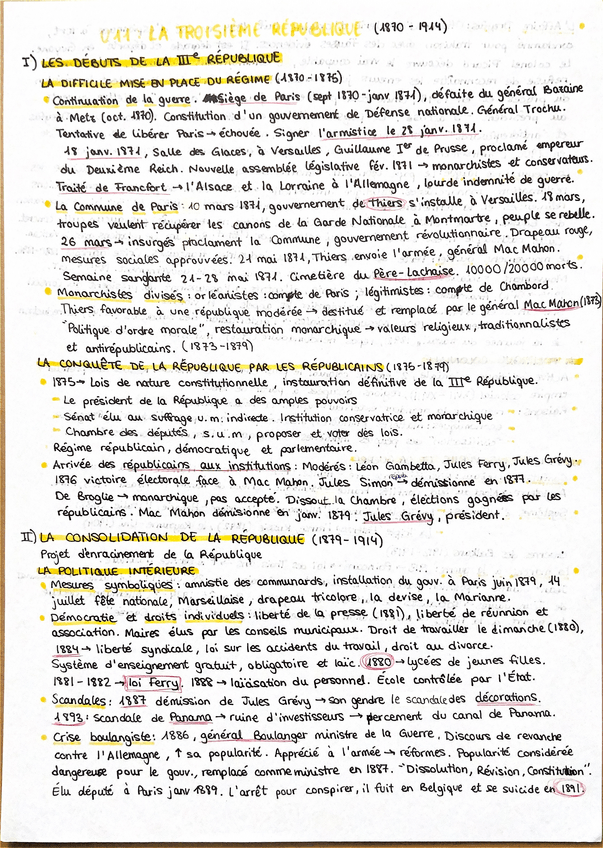 U11: LA TROISIÈME RÉPUBLIQUE (1870-1914)
I) LES DÉBUTS DE LA IIIe RÉPUBLIQUE
LA DIFFICILE MISE EN PLACE DU RÉGIME (1870-1875)
• Continuation de la guerre. Siège de Paris (sept 1870-janv 1871), défaite du général Bazaine
à Metz (oct. 1870). Constitution d'un gouvernement de Défense nationale. Général Trochu.
Tentative de libérer Paris → échouée. Signer l'armistice le 28 janv. 1871.
18 janv. 1871, Salle des Glaces, à Versailles, Guillaume Ier de Prusse, proclamé empereur
du Deuxième Reich. Nouvelle assemblée législative fév. 1871 → monarchistes et conservateurs.
Traité de Francfort → l'Alsace et la Lorraine à l'Allemagne, lourde indemnité de guerre.
• La Commune de Paris: 10 mars 1871, gouvernement de Thiers s'installe à Versailles. 18 mars,
troupes veulent récupérer les canons de la Garde Nationale à Montmartre, peuple se rebelle.
26 mars → insurgés proclament la Commune, gouvernement révolutionnaire. Drapeau rouge,
mesures sociales approuvées. 21 mai 1871, Thiers envoie l'armée, général Mac Mahon.
Semaine sanglante 21-28 mai 1871. Cimetière du Père-Lachaise. 10000/20000 morts.
• Monarchistes divisés: orléanistes: compte de Paris; légitimistes: compte de Chambord
Thiers favorable à une république modérée → destitué et remplacé par le général Mac Mahon (1873)
"Politique d'ordre morale", restauration monarchique → valeurs religieux, traditionnalistes
et antirépublicains. (1873-1879)
LA CONQUÊTE DE LA RÉPUBLIQUE PAR LES RÉPUBLICAINS (1875-1879)
• 1875 → Lois de nature constitutionnelle, instauration définitive de la IIIe République.
- Le président de la République a des amples pouvoirs
- Sénat élu au suffrage u.m. indirecte. Institution conservatrice et monarchique
- Chambre des députés, s.u.m, proposer et voter des lois.
Régime républicain, démocratique et parlementaire.
• Arrivée des républicains aux institutions: Modérés: Léon Gambetta, Jules Ferry, Jules Grévy.
1876 victoire électorale face à Mac Mahon. Jules Simon → démissionne en 1877.
De Broglie → monarchique, pas accepté. Dissout la Chambre, élections gagnées par les
républicains. Mac Mahon démissionne en janv. 1879: Jules Grévy, président.
II) LA CONSOLIDATION DE LA RÉPUBLIQUE (1879-1914)
Projet d'enracinement de la République
LA POLITIQUE INTÉRIEURE
• Mesures symboliques: amnistie des communards, installation du gouv. à Paris juin 1879, 14
juillet fête nationale, Marseillaise, drapeau tricolore, la devise, la Marianne.
• Démocratie et droits individuels: liberté de la presse (1881), liberté de réunnion et
association. Maires élus par les conseils municipaux. Droit de travailler le dimanche (1880),
1884 → liberté syndicale, loi sur les accidents du travail, droit au divorce.
Système d'enseignement gratuit, obligatoire et laïc. 1880 → lycées de jeunes filles.
1881-1882 → loi Ferry. 1888 → laïcisation du personnel. École contrôlée par l'État.
• Scandales: 1887 démission de Jules Grévy → son gendre le scandale des décorations.
1893: Scandale de Panama → ruine d'investisseurs → percement du canal de Panama.
• Crise boulangiste: 1886, général Boulanger ministre de la Guerre. Discours de revanche
contre l'Allemagne, ↑ sa popularité. Apprécié à l'armée → réformes. Popularité considérée
dangereuse pour le gouv., remplacé comme ministre en 1887. "Dissolution, Révision, Constitution".
Élu député à Paris janv 1889. L'arrêt pour conspirer, il fuit en Belgique et se suicide en 1891.